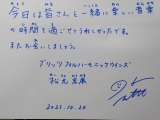 今日は皆さんと一緒に楽しい音楽
の時間を過ごせてうれしかったです。
またお会いしましょう。
ブリッツ フィルハーモニックウインズ
松元宏康
2021.10.20